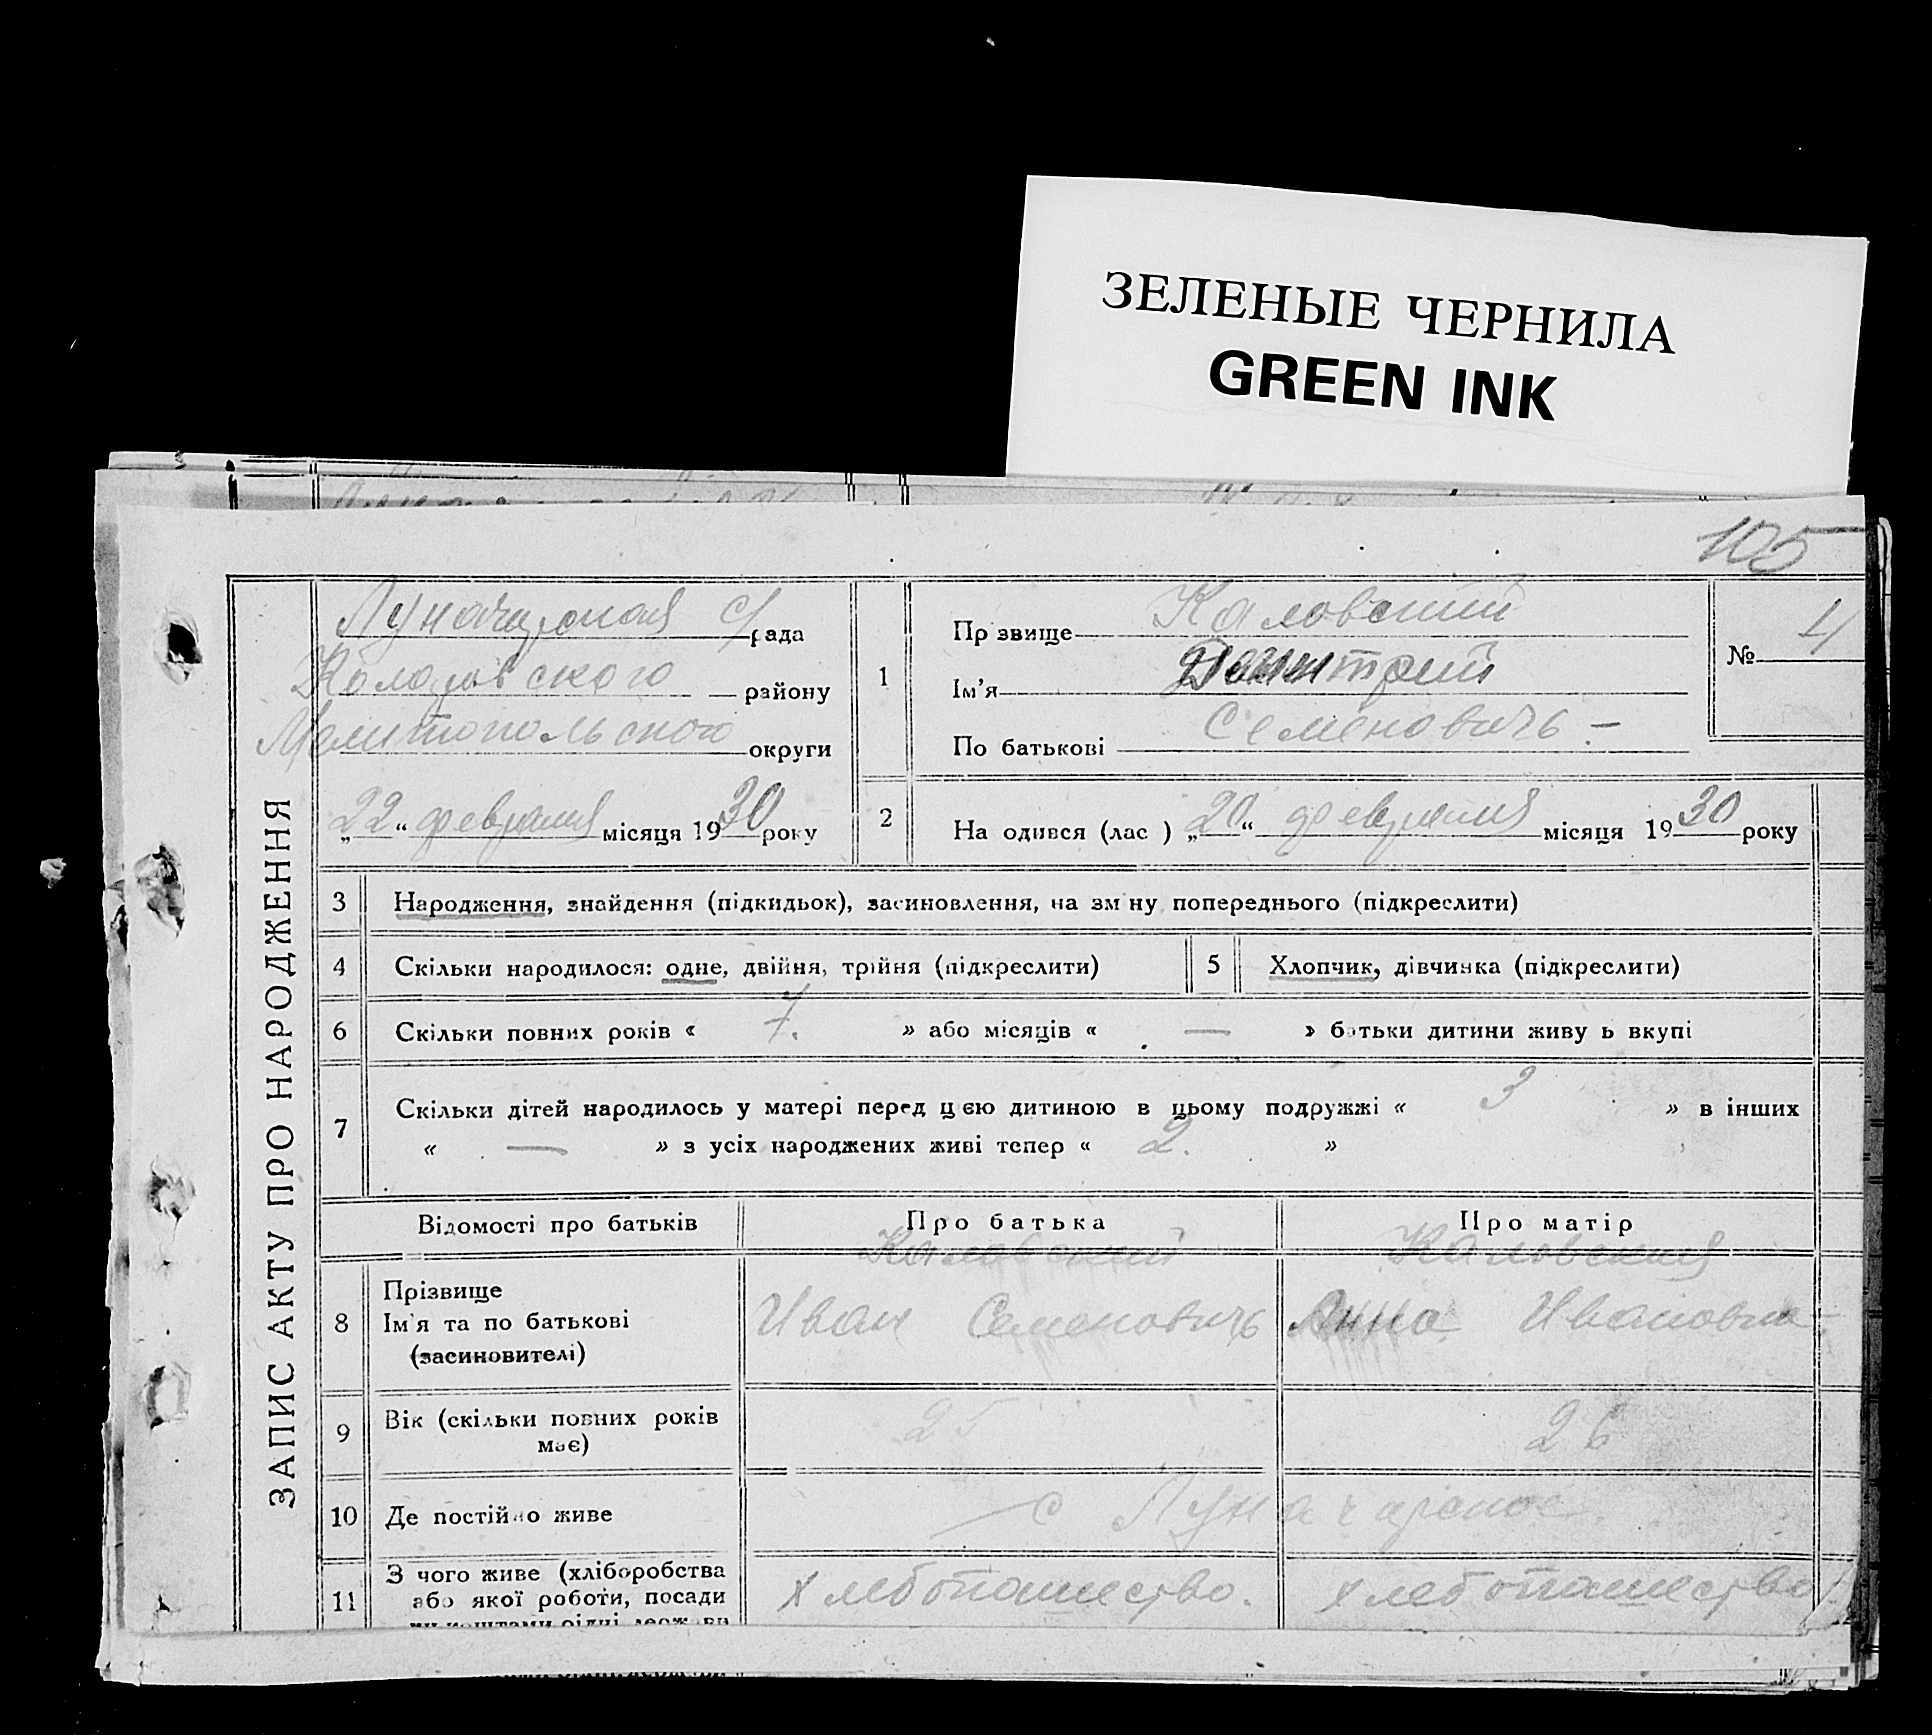 ЗЕЛЕНЫЕ ЧЕРНИЛА
GREEN INK
105
ЗАПИС АКТУ ПРО НАРОДЖЕННЯ
Луначарская с/рада
району
Мелитопольского округи
„22“ февраля місяця 1930 року
1
Пр звище Каловский
Ім'я Дмитрий
По батькові Семеновичъ -
№ 4
2
На одився (лас ) „20“ февраля місяця 1930 року
3 Народження, знайдення (підкидьок), засиновлення, на зм ну попереднього (підкреслити)
4 Скільки народилося: одне, двійня, трійня (підкреслити)
5 Хлопчик, дівчинка (підкреслити)
6 Скільки повних років « 7. » або місяців « — » батьки дитини живу ь вкупі
7 Скільки дітей народилось у матері перед цією дитиною в цьому подружжі « 3 » в інших
« — » з усіх народжених живі тепер « 2. »
Відомості про батьків Про батька Про матір
Каловский Каловския
8 Прізвище
Ім'я та по батькові
(засиновителі)
Иван Семеновичъ Анна Ивановна
9 Вік (скільки повних років
має)
25 26
10 Де постійно живе с Луначарское
11 З чого живе (хліборобства
або якої роботи, посади
хлебопашество. хлебопашество